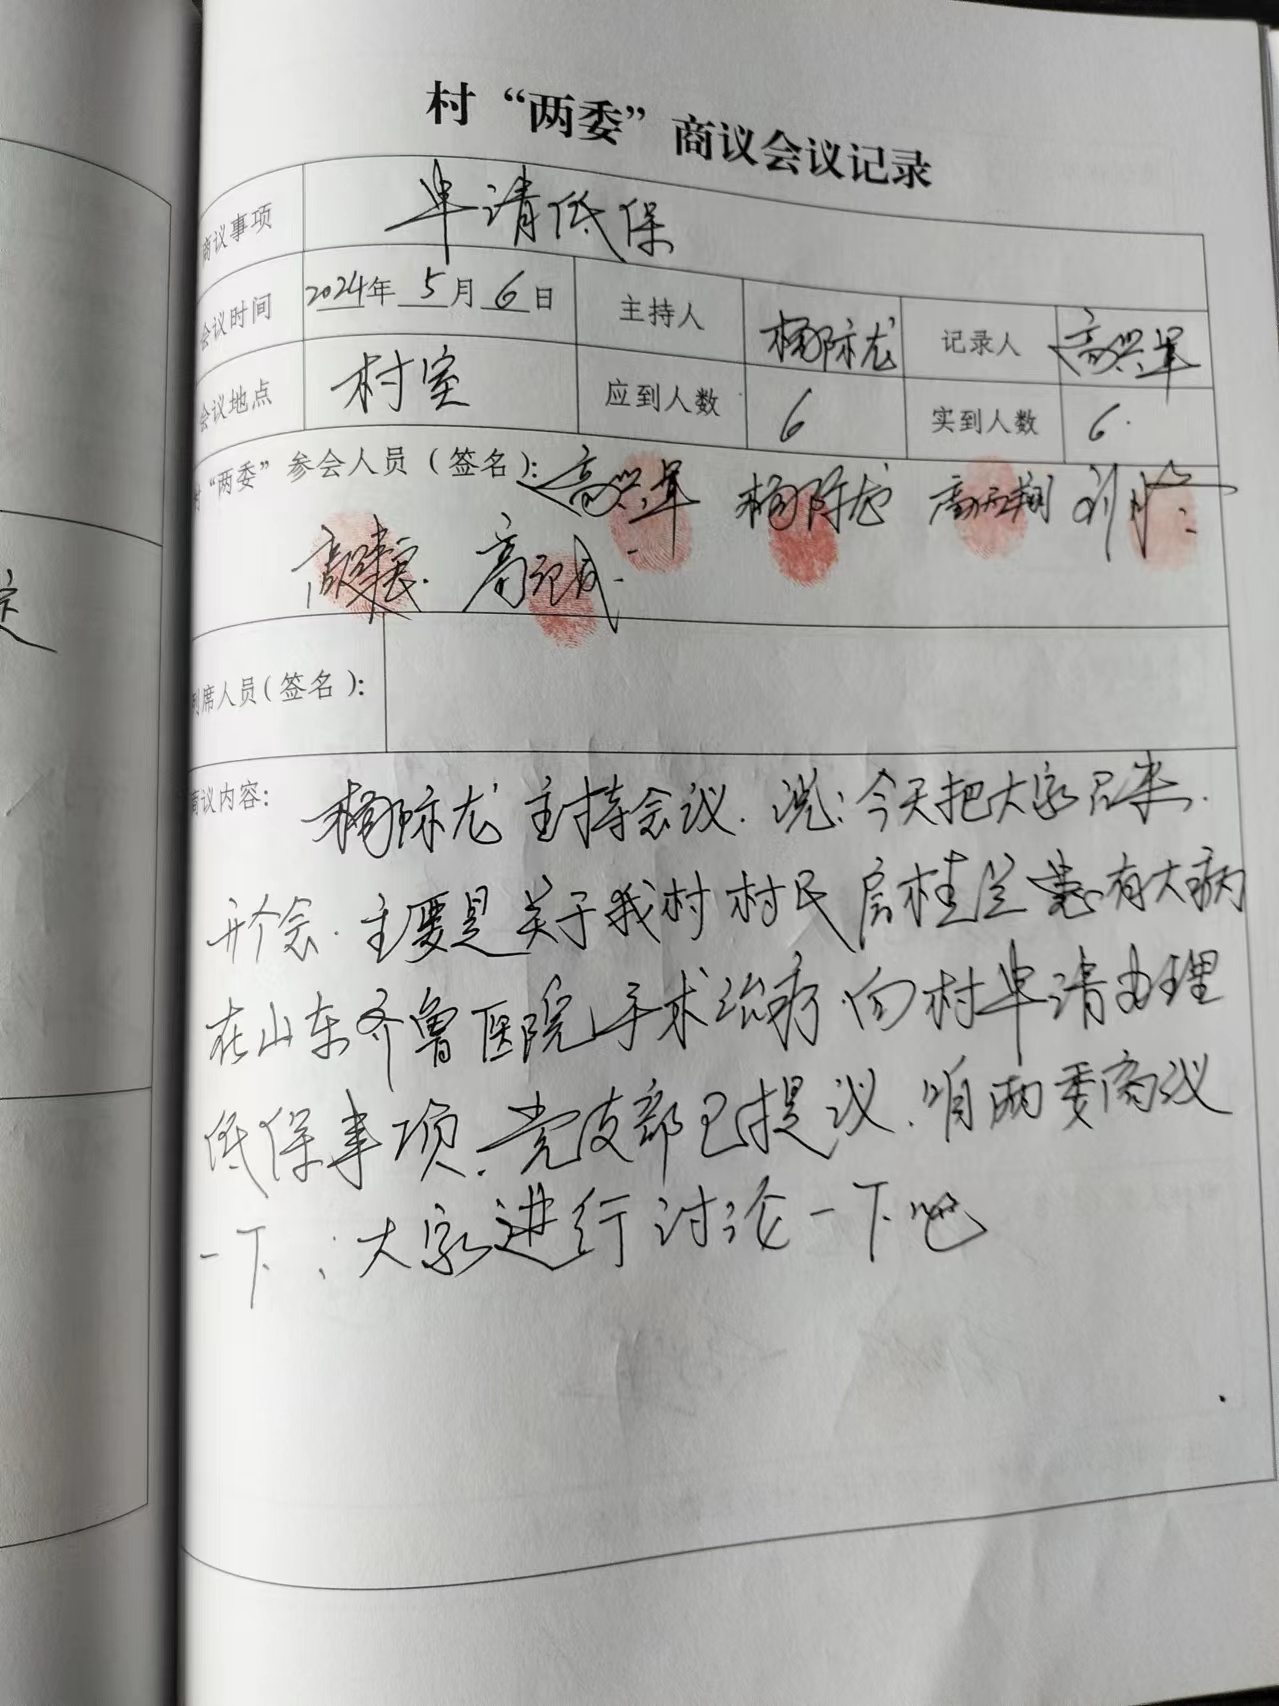 村“两委”商议会议记录
商议事项 申请低保
会议时间 2024年 5月 6日 主持人 杨际龙 记录人 高兴军
会议地点 村室 应到人数 6 实到人数 6.
村“两委”参会人员（签名）: 高兴军 杨际龙
列席人员（签名）:
商议内容: 杨际龙主持会议.说:今天把大家召来.
开个会.主要是关于我村村民房桂兰患有大病
在山东齐鲁医院手术治疗.向村申请办理
低保事项.党支部已提议.咱两委商议
一下:大家进行讨论一下吧